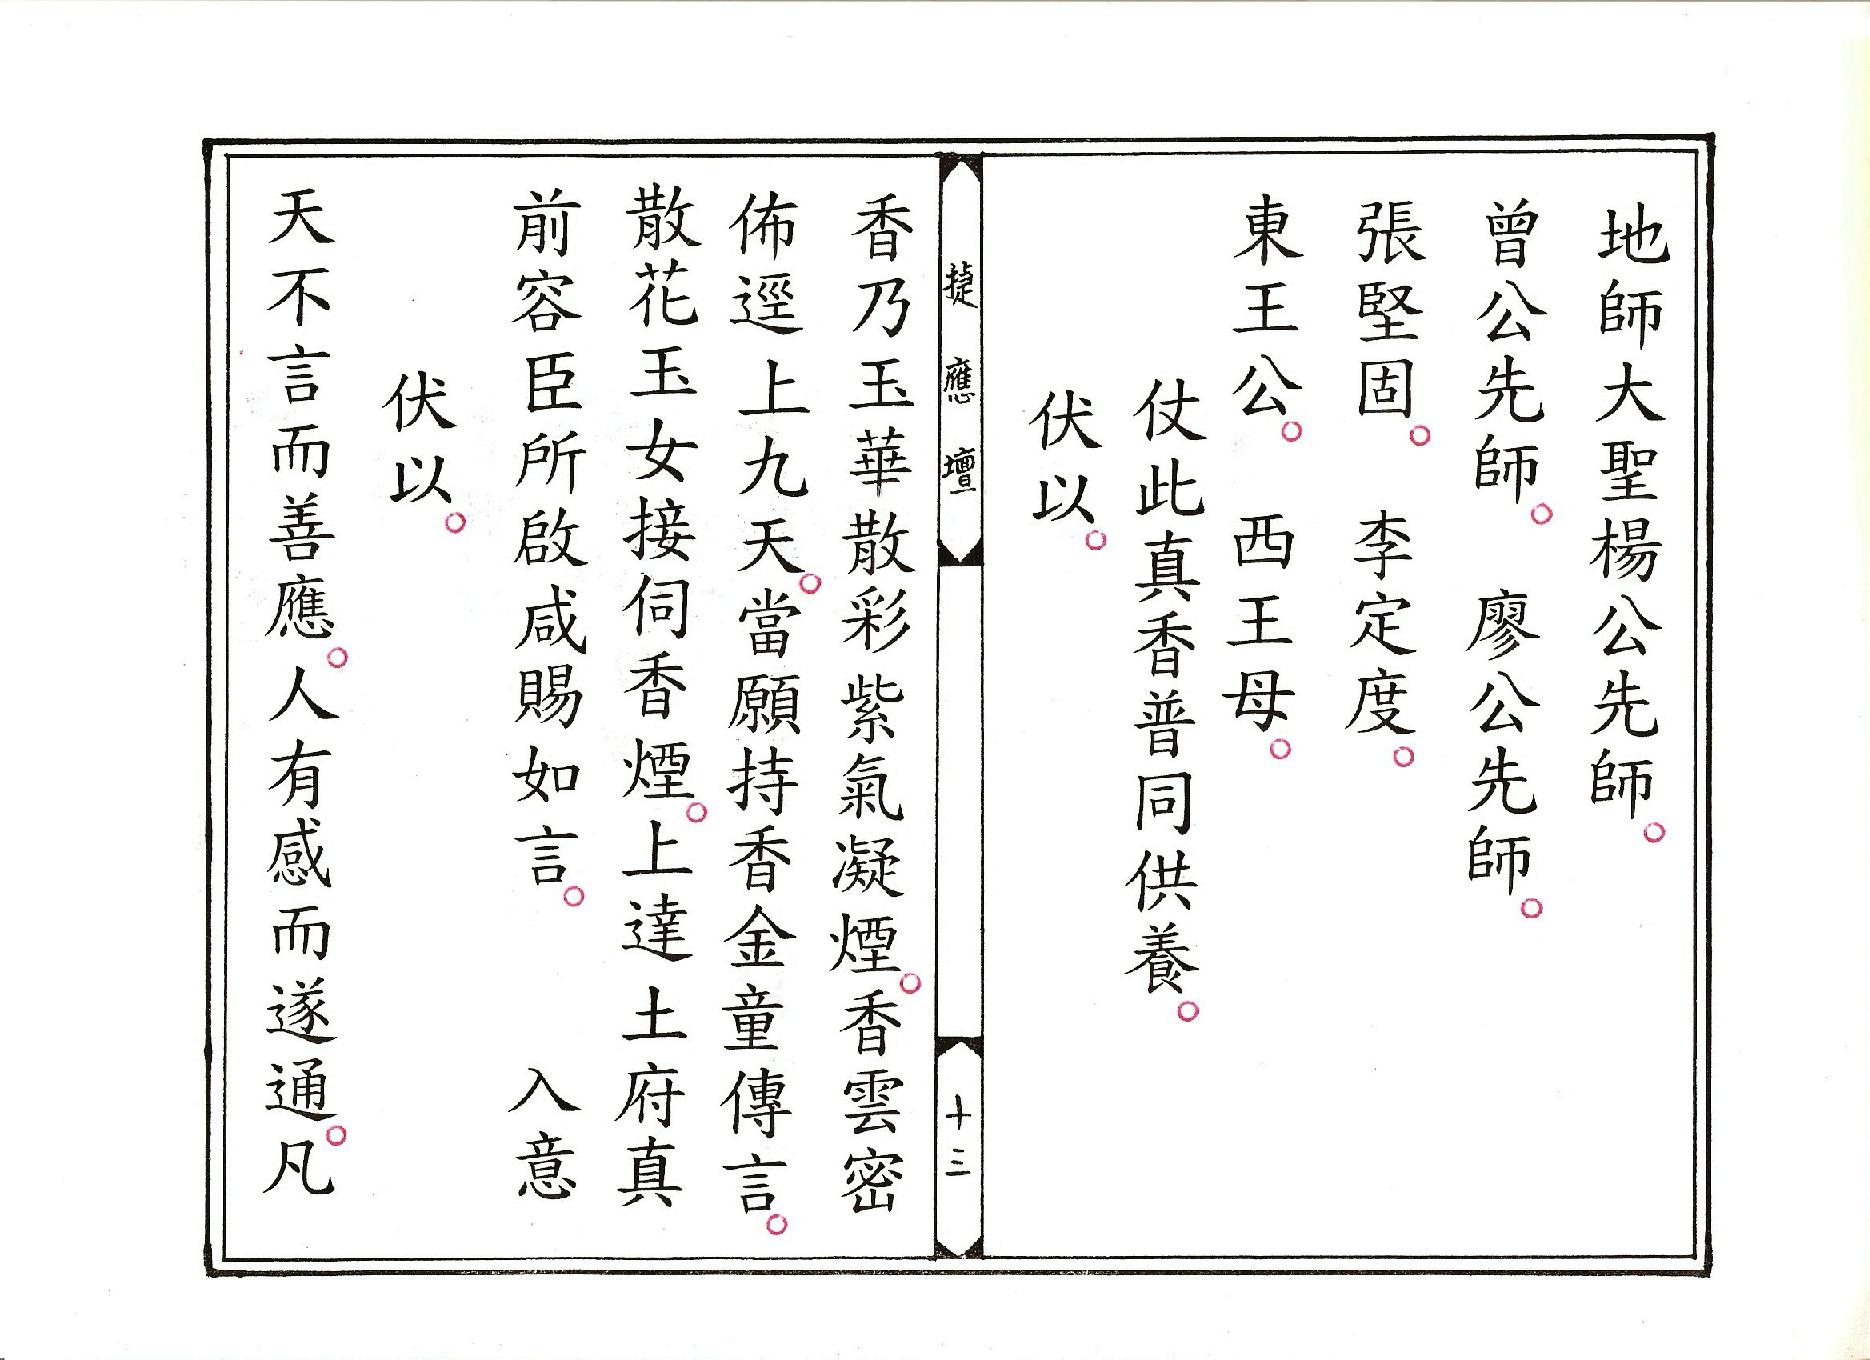 地師大聖楊公先師。
曾公先師。　廖公先師。
張堅固。　李定度。
東王公。　西王母。
仗此真香普同供養。
伏以。
捷應壇
十三
香乃玉華散彩紫氣凝煙。香雲密
佈逕上九天。當願持香金童傳言。
散花玉女接伺香煙。上達土府真
前容臣所啟咸賜如言。　入意
伏以。
天不言而善應。人有感而遂通。凡